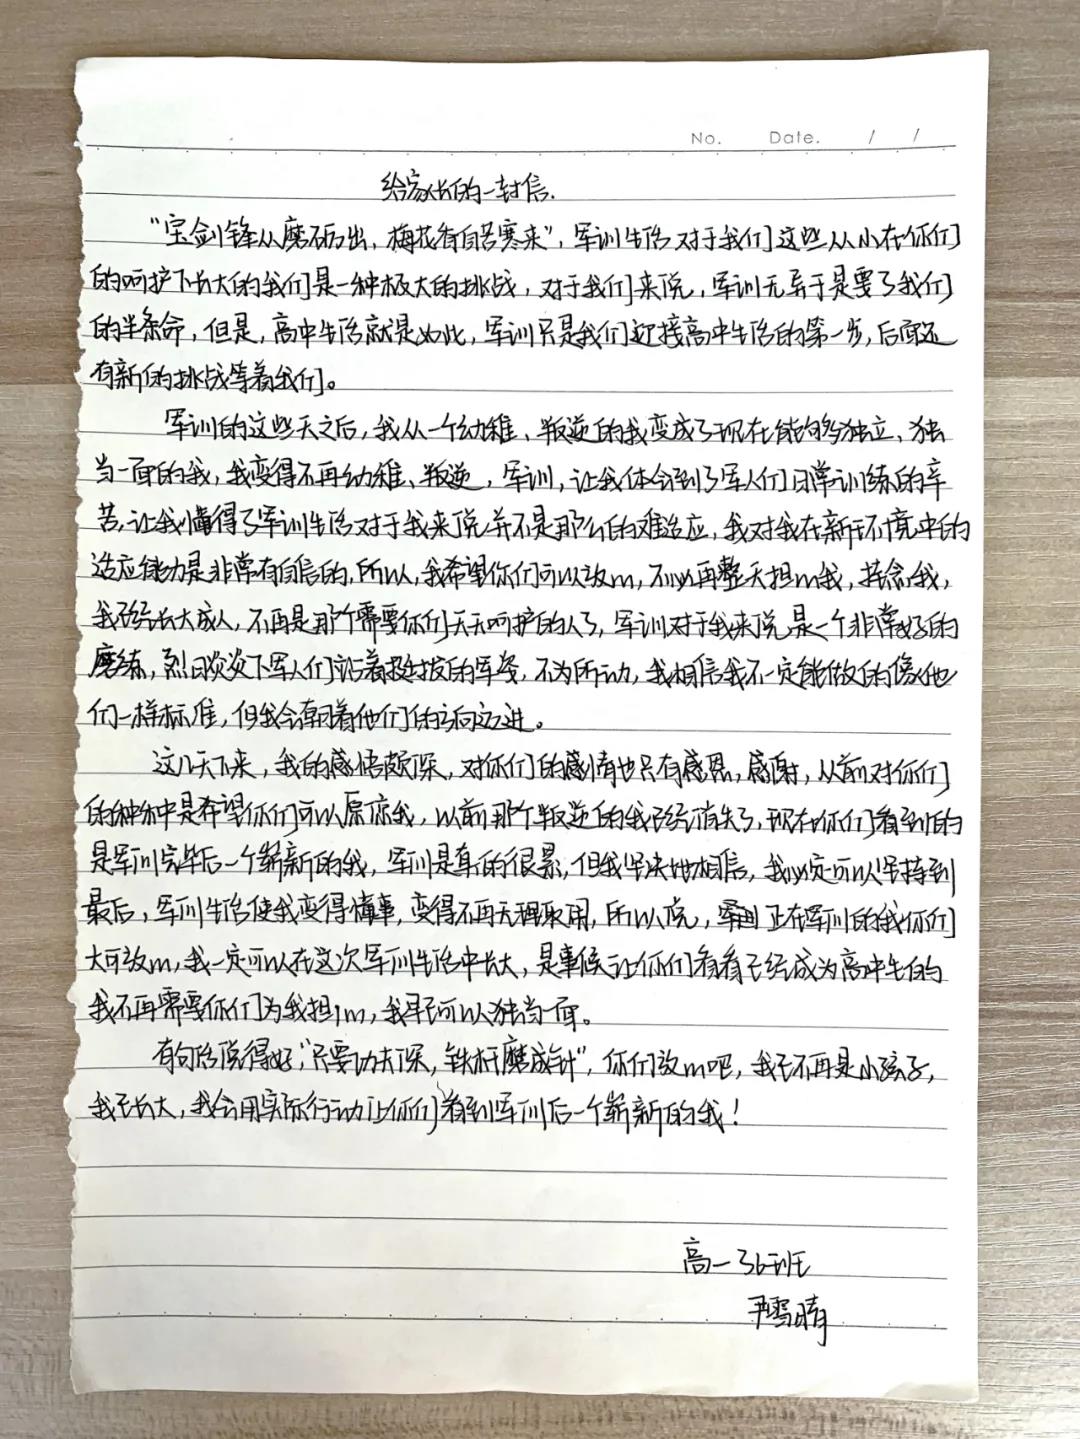 No. Date. / /
给家长的一封信.
“宝剑锋从磨砺出，梅花香自苦寒来”，军训生活对于我们这些从小在你们
的呵护下长大的我们是一种极大的挑战，对于我们来说，军训无异于是要了我们
的半条命，但是，高中生活就是如此，军训只是我们迎接高中生活的第一步，后面还
有新的挑战等着我们。
军训的这些天之后，我从一个幼稚、叛逆的我变成了现在能够独立、独
当一面的我，我变得不再幼稚、叛逆，军训，让我体会到了军人们日常训练的辛
苦，让我懂得了军训生活对于我来说并不是那么的难适应，我对我在新环境中的
适应能力是非常有自信的，所以，我希望你们可以放心，不必再整天担心我，挂念我，
我已经长大成人，不再是那个需要你们天天呵护的人了，军训对于我来说是一个非常好的
磨练，烈日炎炎下军人们站着挺拔的军姿，不为所动，我相信我不一定能做的像他
们一样标准，但我会朝着他们的方向迈进。
这几天下来，我的感悟颇深，对你们的感情也只有感恩，感谢，从前对你们
的种种是希望你们可以原谅我，以前那个叛逆的我已经消失了，现在你们看到的
是军训完毕后一个崭新的我，军训是真的很累，但我坚决地相信，我必定可以坚持到
最后，军训生活使我变得懂事，变得不再无理取闹，所以说，正在军训的我你们
大可放心，我一定可以在这次军训生活中长大，是事候让你们看看已经成为高中生的
我不再需要你们为我担心，我早已可以独当一面。
有句话说得好，“只要功夫深，铁杵磨成针”，你们放心吧，我已不再是小孩子，
我已长大，我会用实际行动让你们看到军训后一个崭新的我！
高一36班
尹雪晴